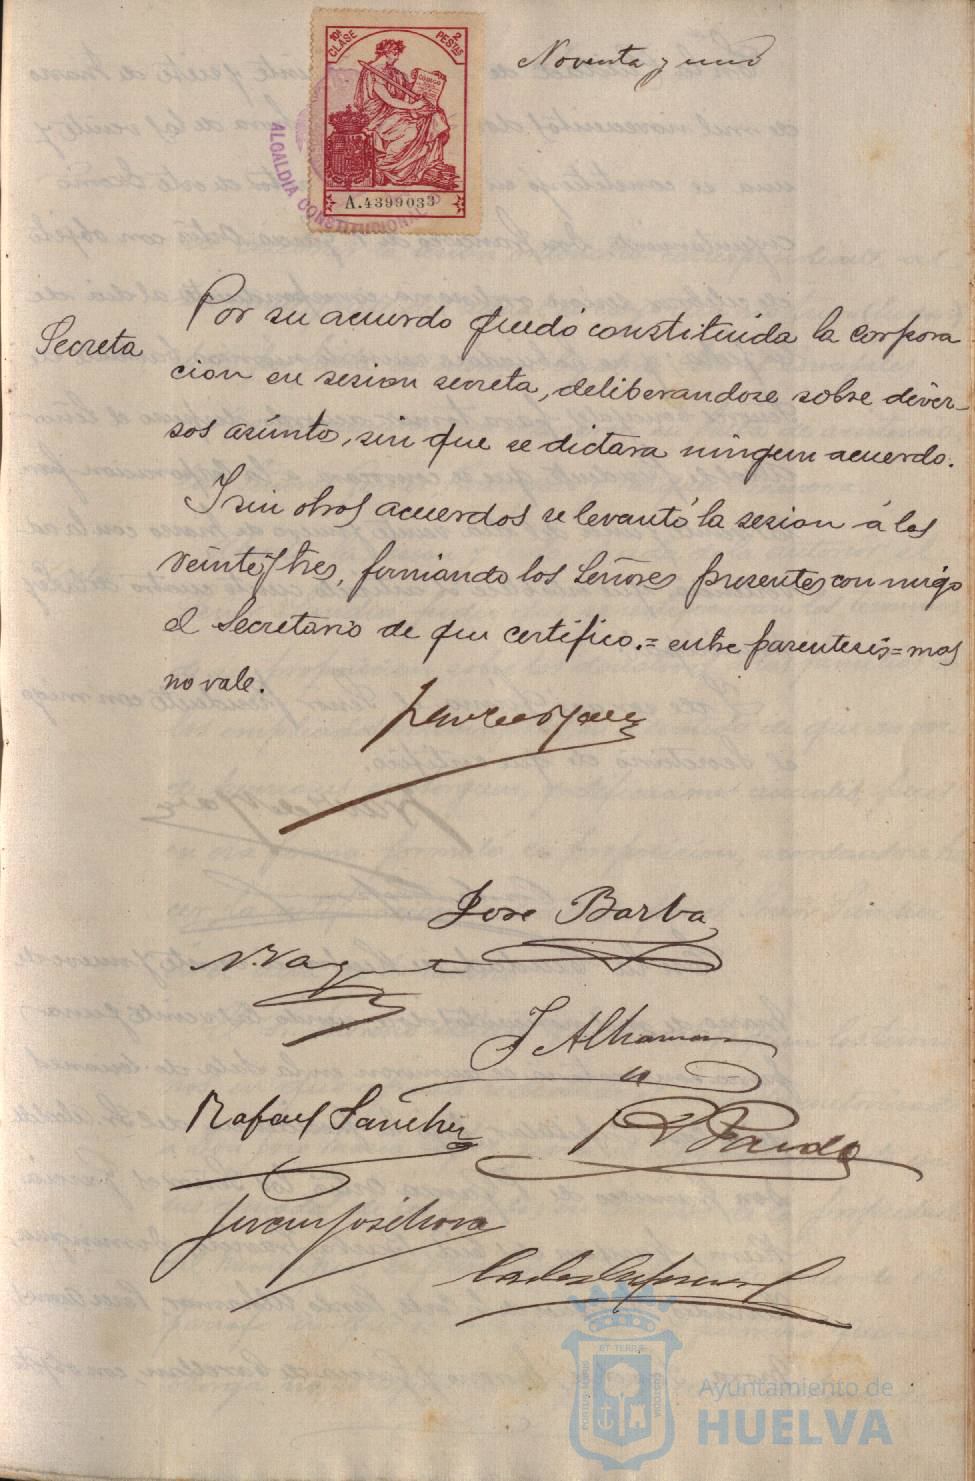 10ª CLASE
2 PESTAS
A.4399033
ALCALDIA CONSTITUCIONAL
Noventa y uno
Secreta
Por su acuerdo quedó constituida la corpora
cion en sesion secreta, deliberandose sobre diver-
sos asunto, sin que se dictara ningun acuerdo.
Y sin otros acuerdos se levantó la sesion á las
veintey tres, firmando los Señores presentes con migo
el Secretario de que certifico.= entre parentesis = mas
no vale.
Jose Barba
Rafael Sanchez
Ayuntamiento de
HUELVA